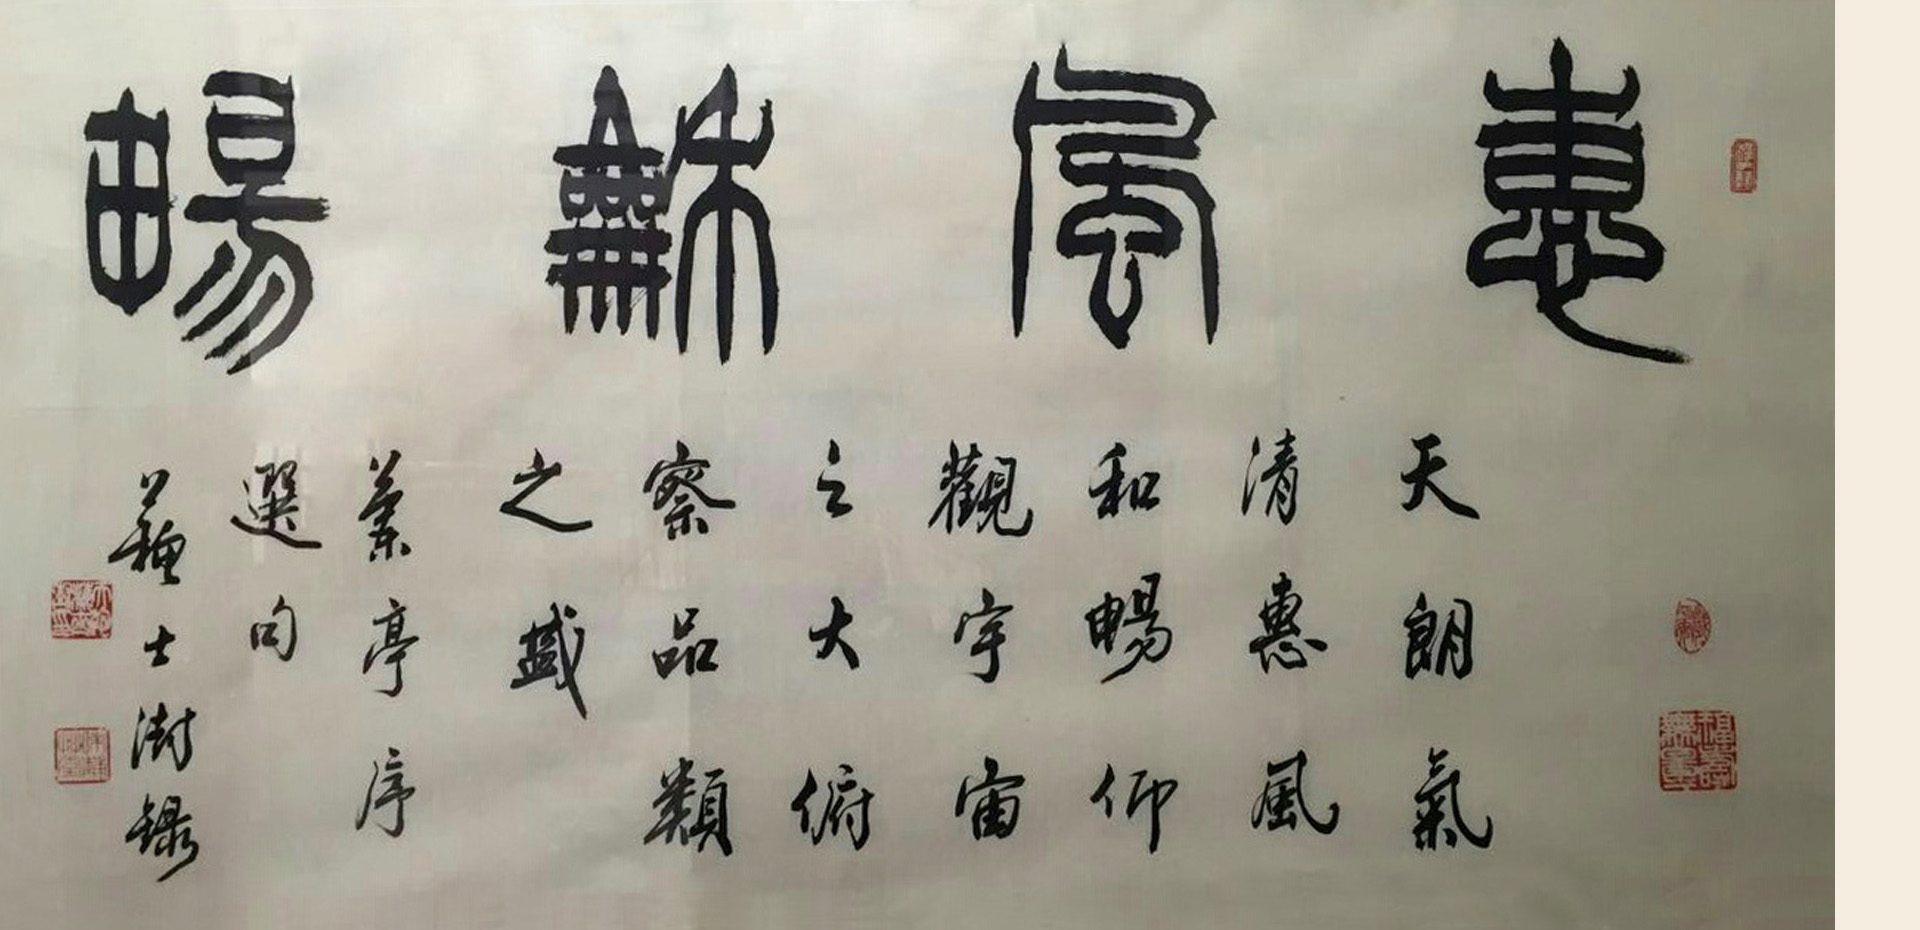 惠風龢暢
天朗氣
清惠風
和暢仰
觀宇宙
之大俯
察品類
之盛
蘭亭序
選句
蘇士澍錄
福壽無量